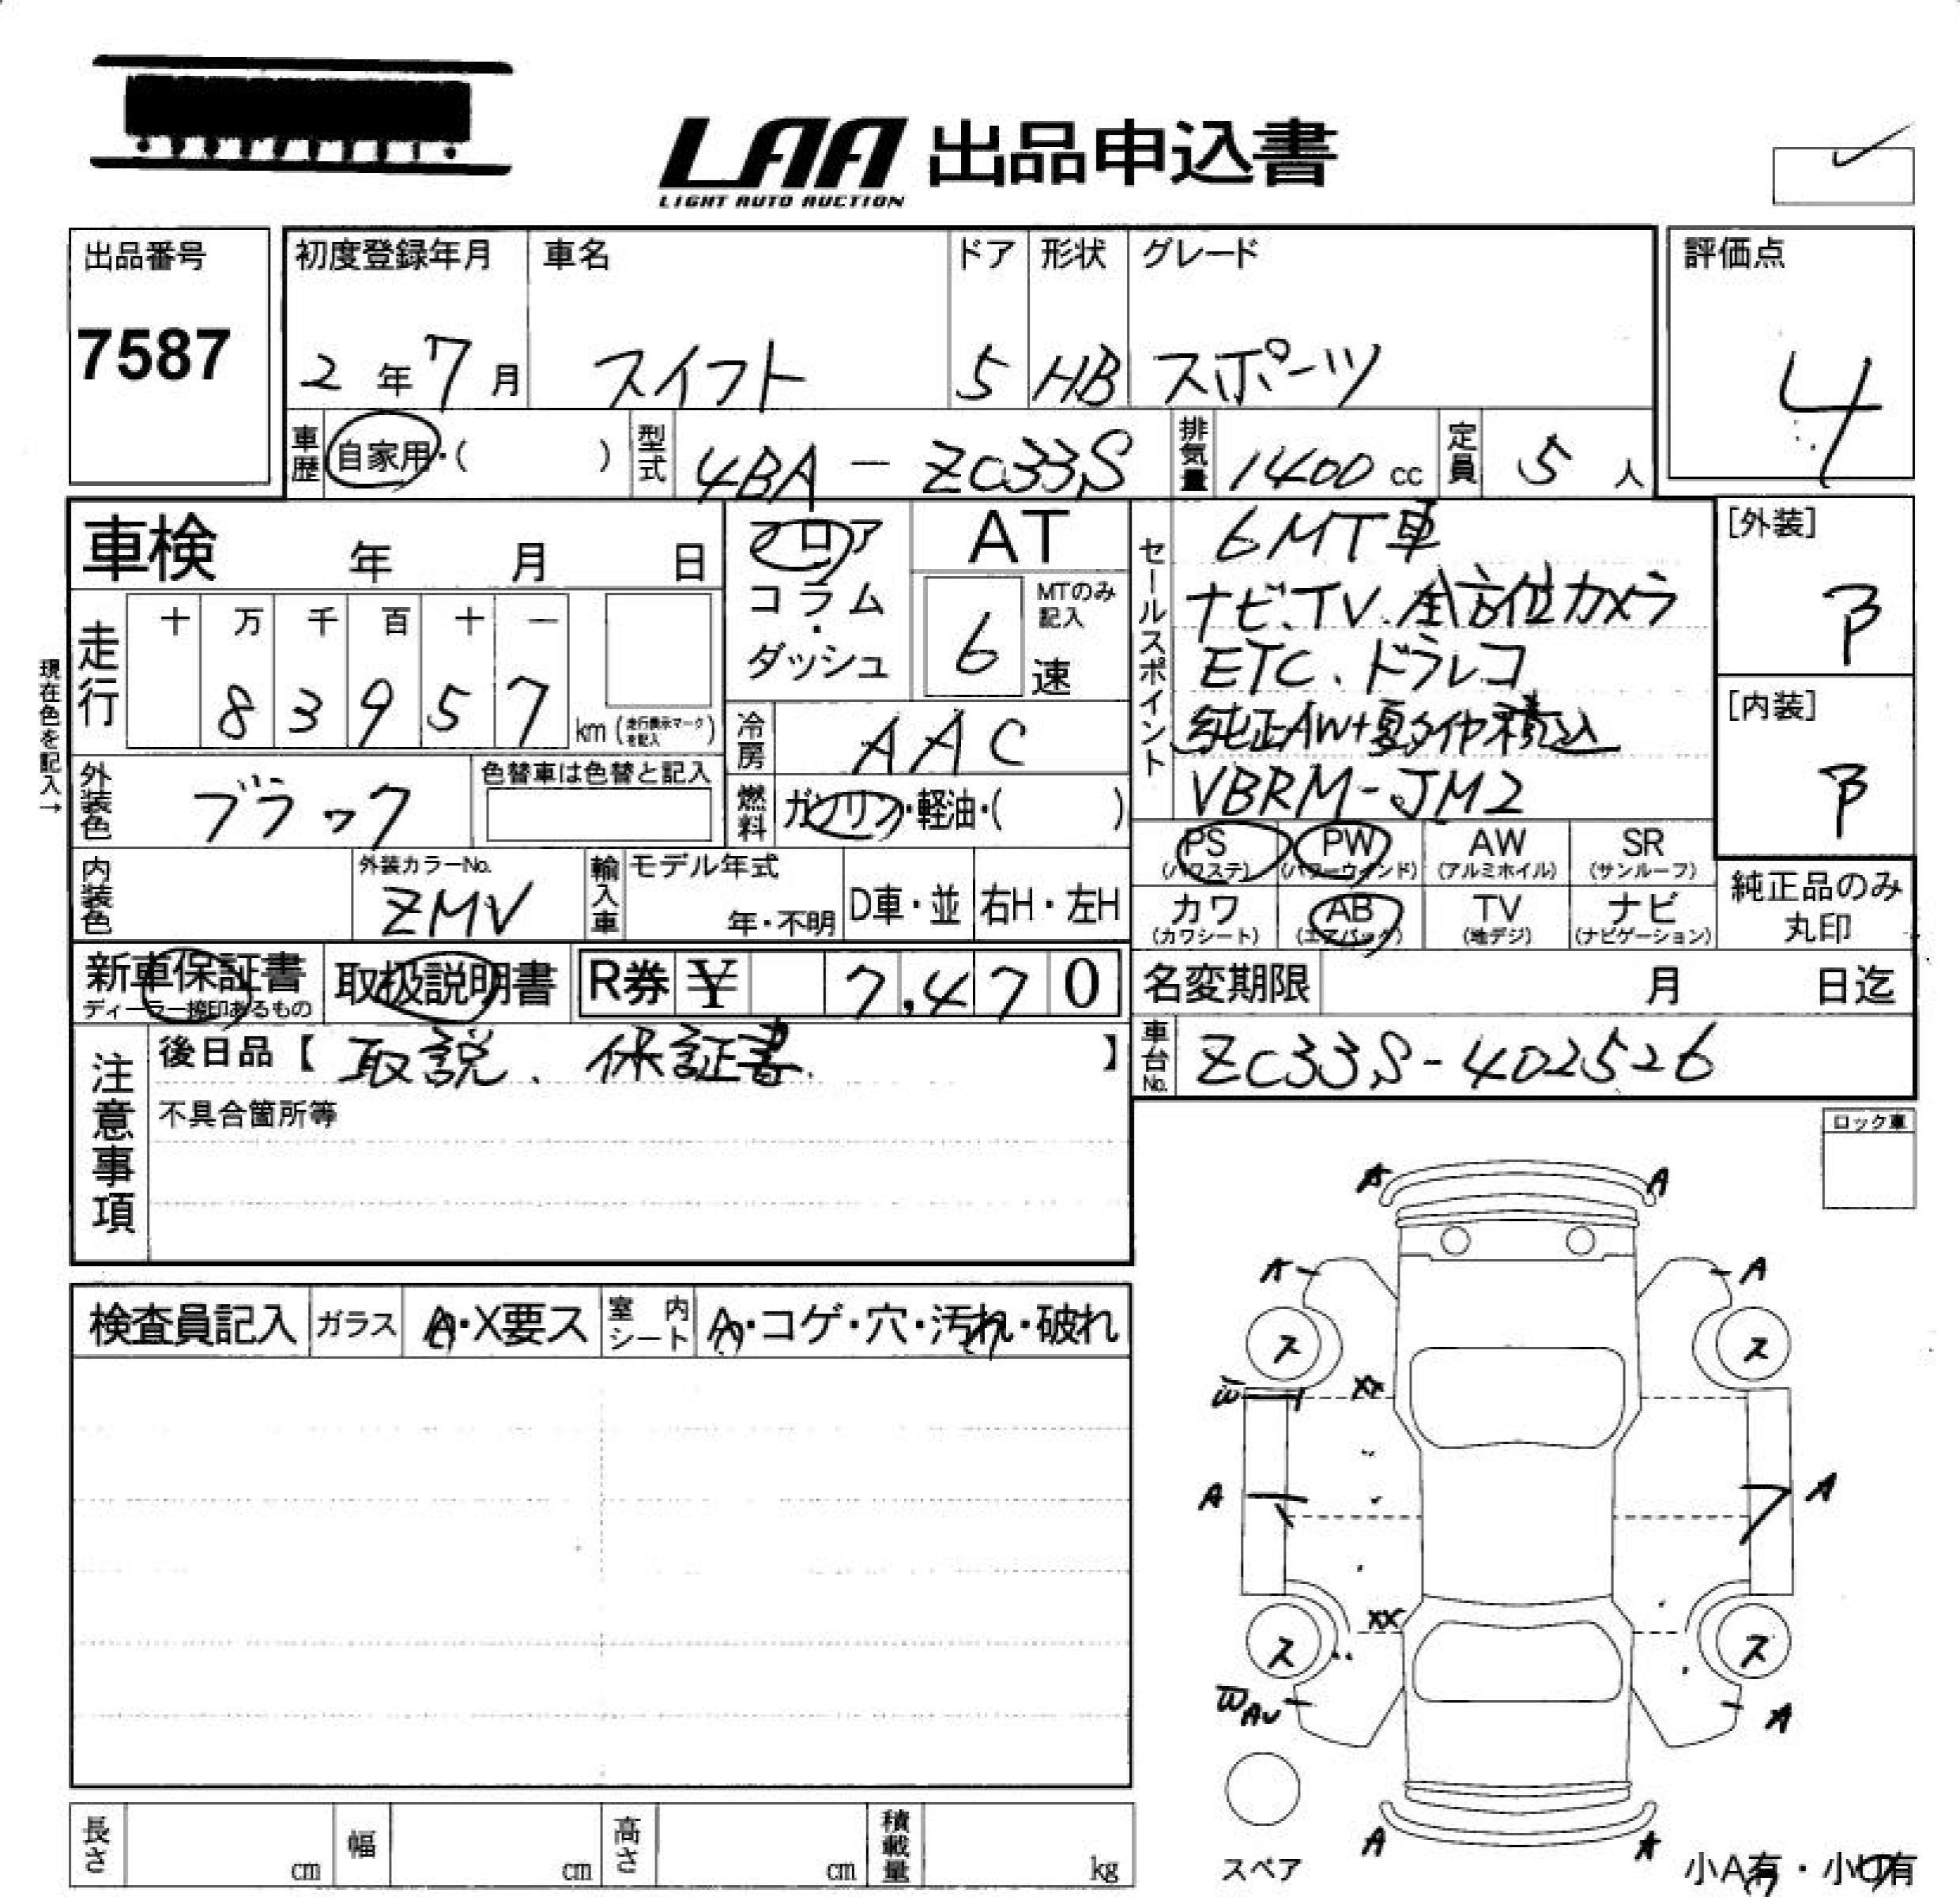 LAA 出品申込書
LIGHT AUTO AUCTION
出品番号
7587
初度登録年月 車名 ドア 形状 グレード
2年7月 スイフト 5 HB スポーツ
評価点
4
車歴 自家用・( ) 型式 4BA-ZC33S 排気量 1400cc 定員 5人
車検 年 月 日
フロア
コラム
・
ダッシュ
AT
MTのみ記入
6速
セールスポイント
6MT車
ナビ、TV、全方位カメラ
ETC、ドラレコ
純正AW+夏タイヤ積込
VBRM-JM2
[外装]
[内装]
現在色を記入→
走行 十 万 千 百 十 一
8 3 9 5 7 km (走行表示マークを記入)
冷房 AAC
外装色 ブラック 色替車は色替と記入
燃料 ガソリン・軽油・( )
PS (パワステ) PW (パワーウインド) AW (アルミホイル) SR (サンルーフ)
カワ (カワシート) AB (エアバック) TV (地デジ) ナビ (ナビゲーション)
純正品のみ
丸印
内装色 外装カラーNo. ZMV
輸入車 モデル年式 年・不明 D車・並 右H・左H
新車保証書 ディーラー捺印あるもの 取扱説明書 R券 ¥ 7,470
名変期限 月 日迄
車台No. ZC33S-402526
注意事項
後日品【 取説、保証書 】
不具合箇所等
ロック車
検査員記入 ガラス A・X要ス 室内シート A・コゲ・穴・汚れ・破れ
A A
A A
ス ス
W XX
A A
XX
ス ス
W AU A
A A
スペア
小A有・小U有
長さ cm 幅 cm 高さ cm 積載量 kg